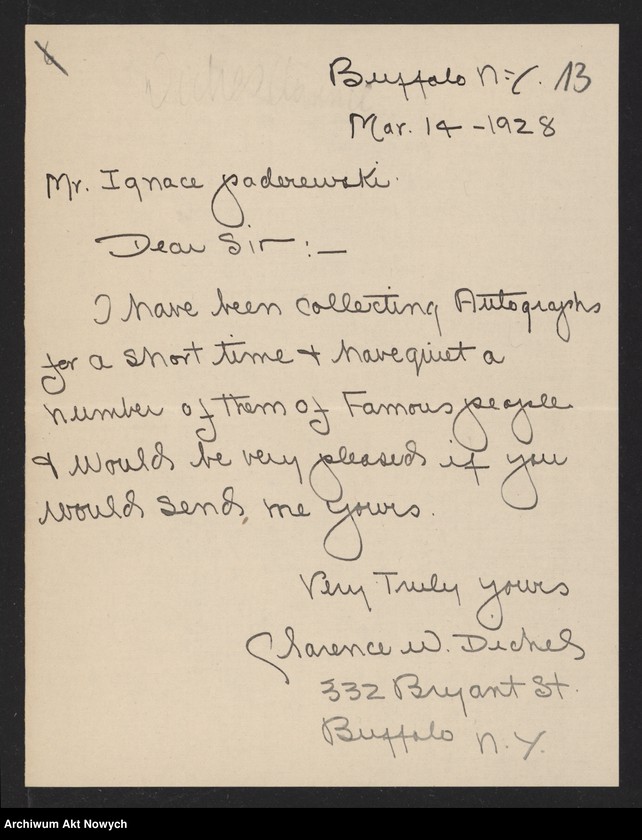 Buffalo N-Y. 13
Mar. 14 - 1928
Mr. Ignace paderewski.
Dear Sir:—
I have been collecting Autographs
for a short time & have quiet a
number of them of Famous people
& would be very pleased if you
would send me yours.
Very Truly yours
Clarence W.
332 Bryant St.
Buffalo N.Y.
Archiwum Akt Nowych